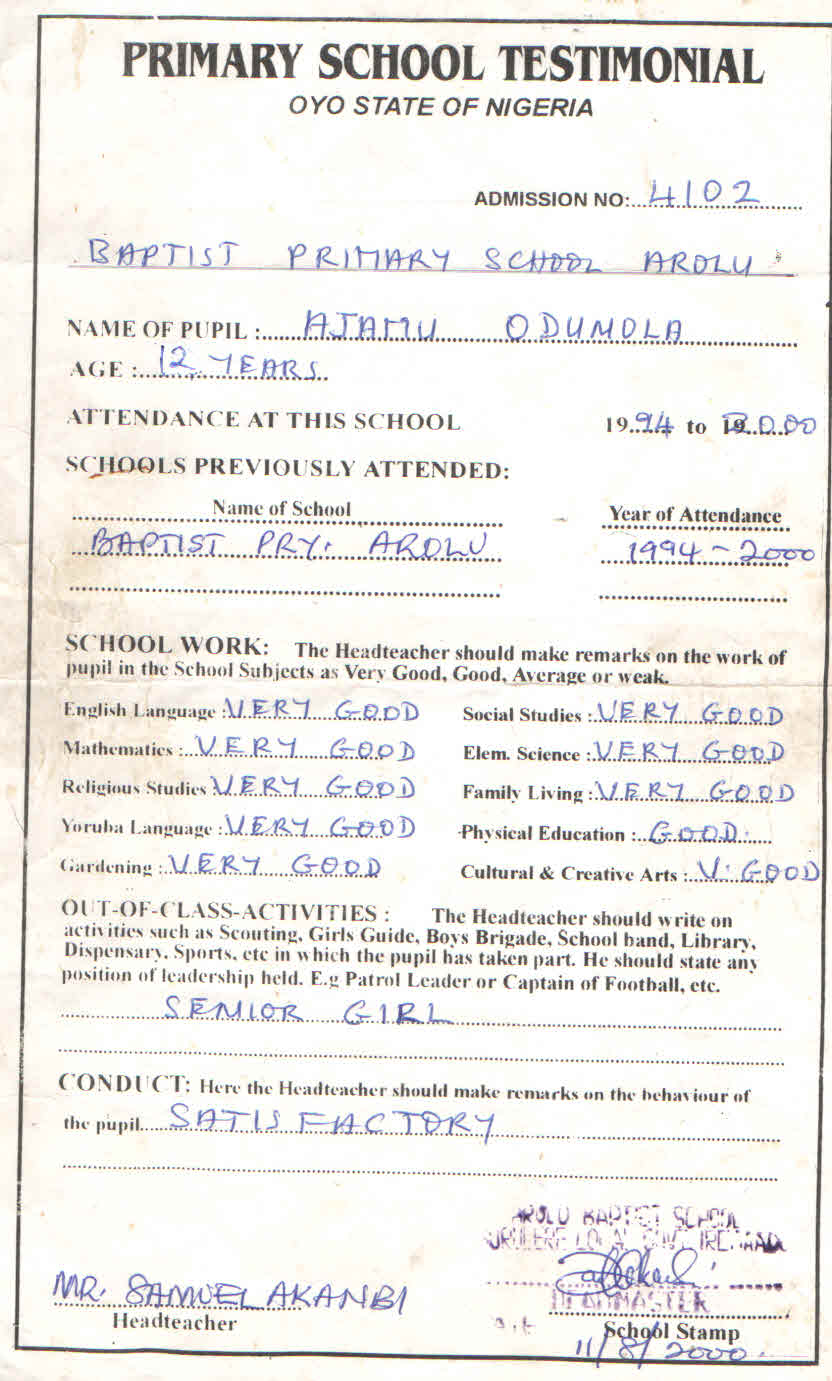 PRIMARY SCHOOL TESTIMONIAL
OYO STATE OF NIGERIA
ADMISSION NO: 4102
BAPTIST PRIMARY SCHOOL AROLU
NAME OF PUPIL : AJAMU ODUMOLA
AGE : 12 YEARS
ATTENDANCE AT THIS SCHOOL 1994 to 2000
SCHOOLS PREVIOUSLY ATTENDED:
Name of School Year of Attendance
BAPTIST PRY. AROLU 1994 - 2000
SCHOOL WORK: The Headteacher should make remarks on the work of
pupil in the School Subjects as Very Good, Good, Average or weak.
English Language : VERY GOOD Social Studies : VERY GOOD
Mathematics : VERY GOOD Elem. Science : VERY GOOD
Religious Studies VERY GOOD Family Living : VERY GOOD
Yoruba Language : VERY GOOD Physical Education : GOOD.
Gardening : VERY GOOD Cultural & Creative Arts : V. GOOD
OUT-OF-CLASS-ACTIVITIES : The Headteacher should write on
activities such as Scouting, Girls Guide, Boys Brigade, School band, Library,
Dispensary, Sports, etc in which the pupil has taken part. He should state any
position of leadership held. E.g Patrol Leader or Captain of Football, etc.
SENIOR GIRL
CONDUCT: Here the Headteacher should make remarks on the behaviour of
the pupil SATISFACTORY
AROLU BAPTIST SCHOOL
SURULERE LOCAL GOVT. IRESAADU
MR. SAMUEL AKANBI
HEADMASTER
Headteacher School Stamp
11/8/2000